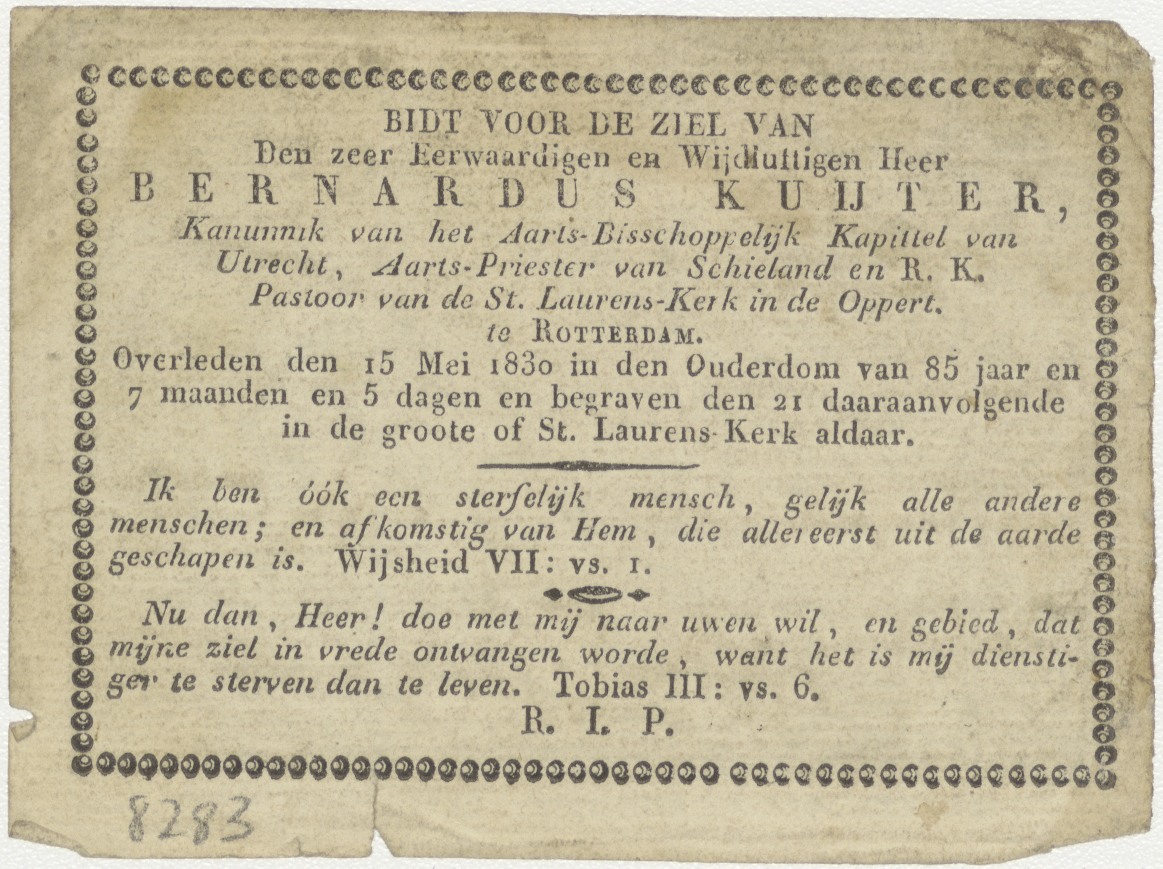 BIDT VOOR DE ZIEL VAN
Den zeer Eerwaardigen en Wijdluftigen Heer
BERNARDUS KUIJTER,
Kanunnik van het Aarts-Bisschoppelijk Kapittel van
Utrecht, Aarts-Priester van Schieland en R. K.
Pastoor van de St. Laurens-Kerk in de Oppert.
te ROTTERDAM.
Overleden den 15 Mei 1830 in den Ouderdom van 85 jaar en
7 maanden en 5 dagen en begraven den 21 daaraanvolgende
in de groote of St. Laurens-Kerk aldaar.
Ik ben óók een sterfelijk mensch, gelijk alle andere
menschen; en afkomstig van Hem, die allereerst uit de aarde
geschapen is. Wijsheid VII: vs. 1.
Nu dan, Heer! doe met mij naar uwen wil, en gebied, dat
mijne ziel in vrede ontvangen worde, want het is mij diensti-
ger te sterven dan te leven. Tobias III: vs. 6.
R. I. P.
8283